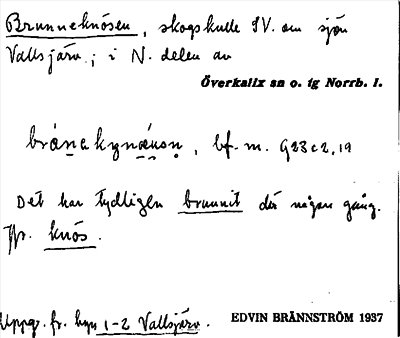 Brunneknösen, skogskulle SV. om sjön
Vallsjärv; i N. delen av
Överkalix sn o. tg Norrb. l.
bf. m. G23c2,19
Det har tydligen brunnit där någon gång.
Jfr. knös.
Uppg. fr. hyn 1-2 Vallsjärv.
EDVIN BRÄNNSTRÖM 1937